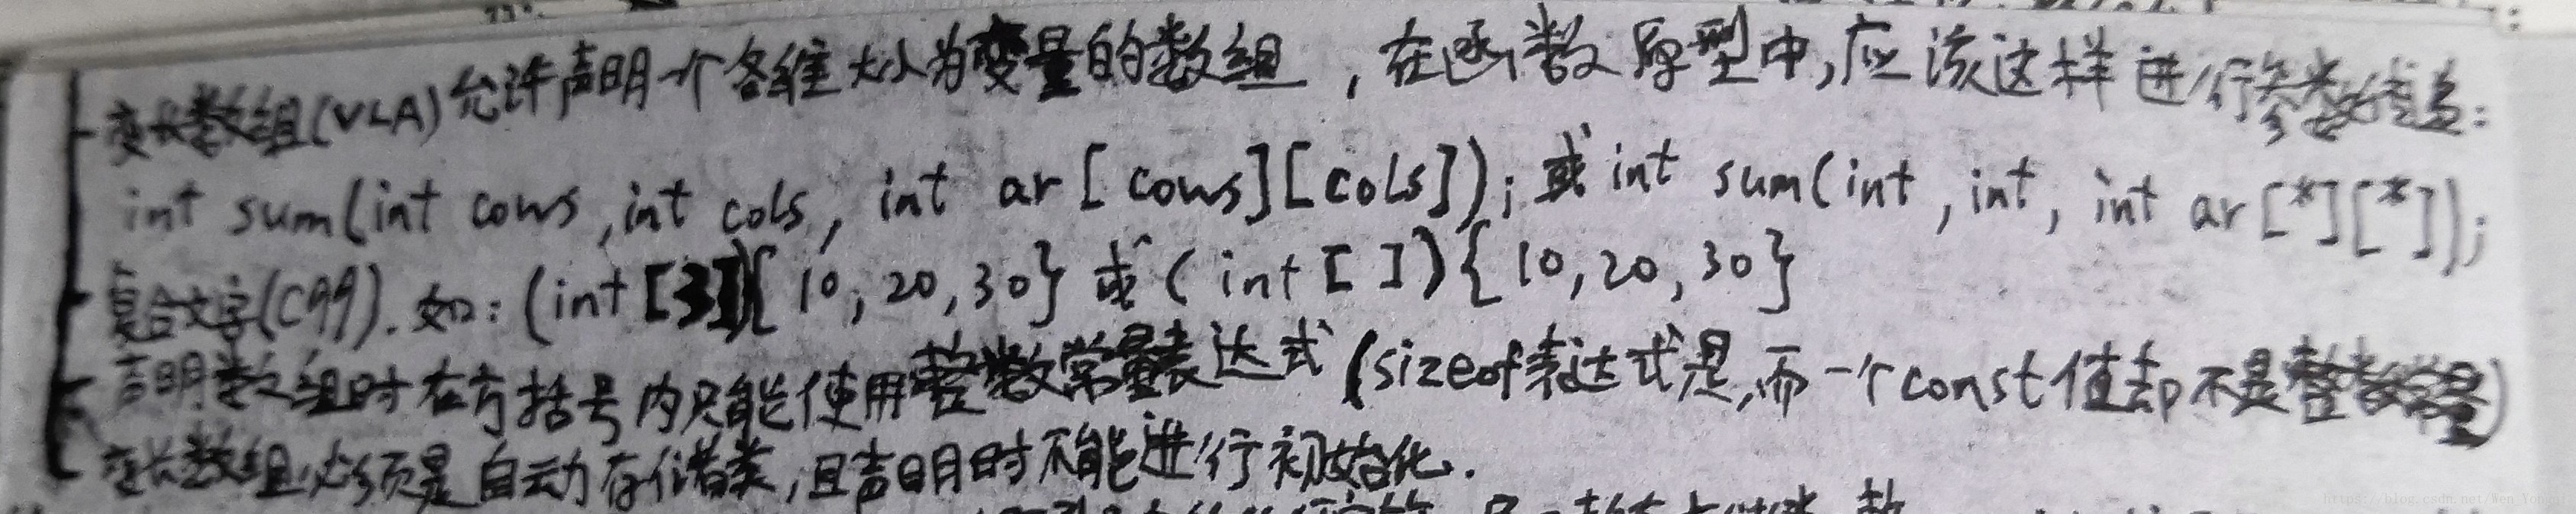 变长数组(VLA)允许声明一个各维大小为变量的数组，在函数原型中,应该这样进行参数传递:
int sum(int cows,int cols, int ar[cows][cols]);或int sum(int,int,int ar[*][*]);
复合文字(C99).如:(int[3]){10,20,30}或(int[]){10,20,30}
声明数组时在方括号内只能使用整数常量表达式(sizeof表达式是,而一个const值却不是整数常量)
变长数组必须是自动存储类,且声明时不能进行初始化.